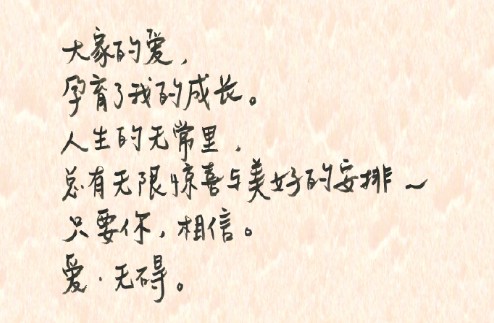 大家的爱，
孕育了我的成长。
人生的无常里，
总有无限惊喜与美好的安排～
只要你，相信。
爱·无碍。